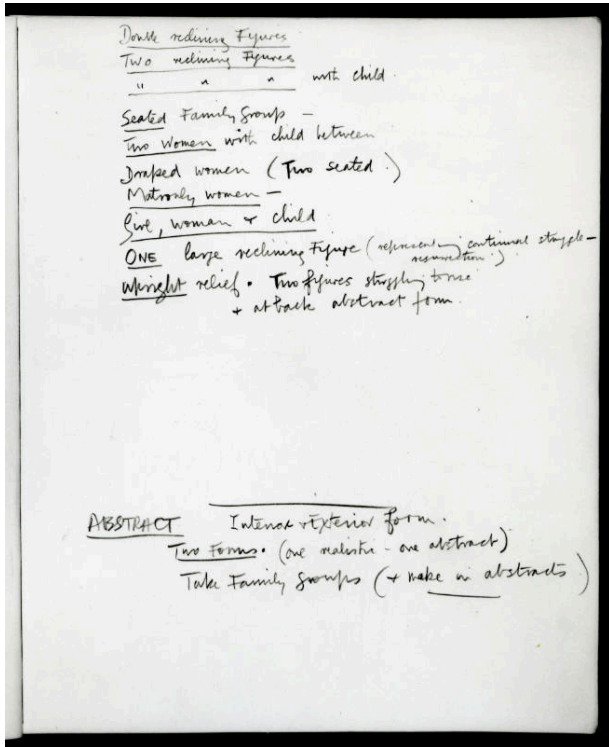 Double reclining Figures
Two reclining Figures
" " " with child.
Seated Family Group –
Two Women with child between
Draped women (Two seated.)
Matronly women –
Girl, woman + child
ONE large reclining Figure (representing continual struggle –
resurrection.)
Upright relief. Two figures struggling to rise
+ at back abstract form.
ABSTRACT Interior + Exterior form.
Two Forms. (one realistic - one abstract)
Take Family Groups (+ make in abstracts.)